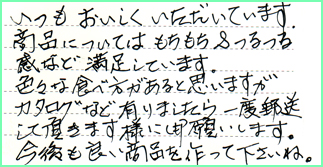 いつもおいしくいただいています。
商品についてはもちもち&つるつる
感など満足しています。
色々な食べ方があると思いますが
カタログなど有りましたら一度郵送
して頂きます様にお願いします。
今後も良い商品を作って下さいね。